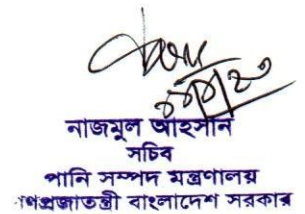 নাজমুল আহসান
সচিব
পানি সম্পদ মন্ত্রণালয়
গণপ্রজাতন্ত্রী বাংলাদেশ সরকার